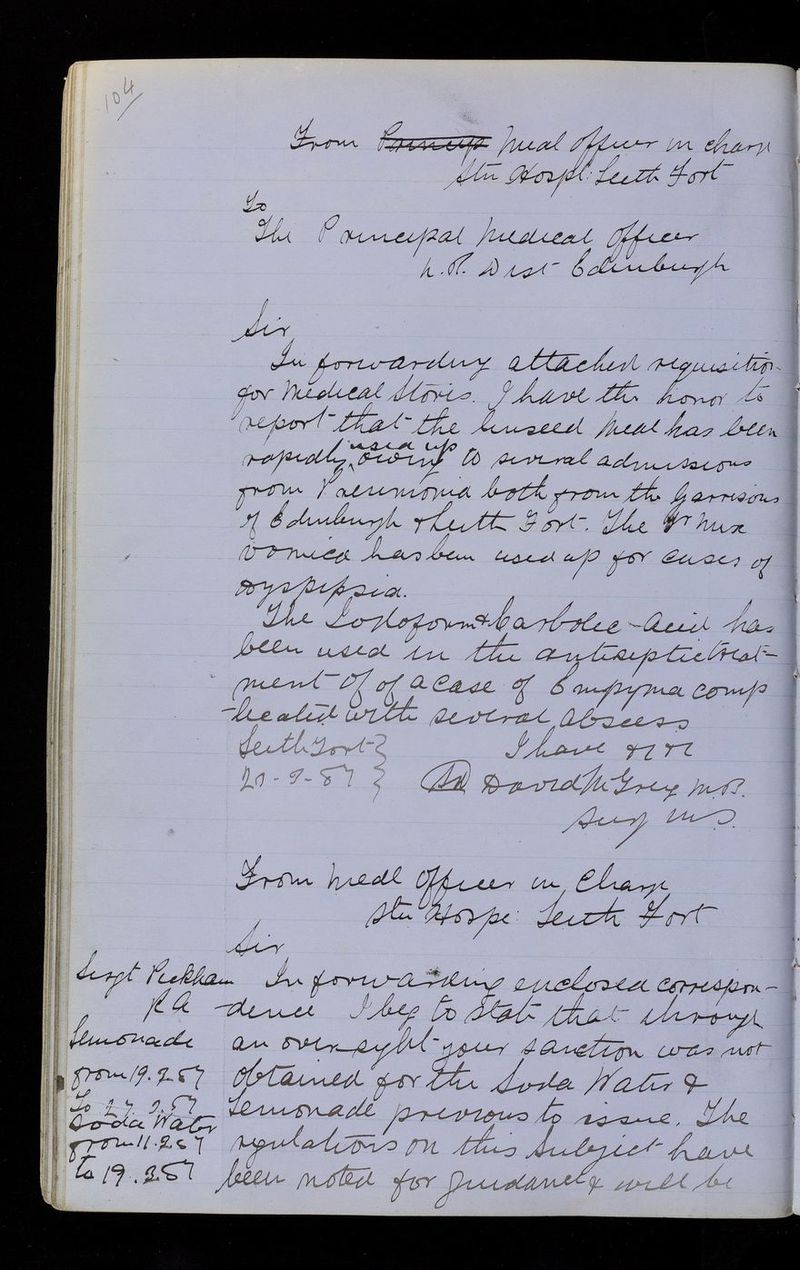 104
From Princip Medl Officer in charge
Stn Hospl: Leith Fort
To
The Principal Medical Officer
N.B. Dist Edinburgh
Sir
In forwarding attached requisition
for Medical Stores. I have the honor to
report that the Linseed Meal has been
rapidly used up owing to several admissions
from Pneumonia both from the Garrisons
of Edinburgh & Leith Fort. The Tr Nux
vomica has been used up for cases of
Dyspepsia.
The Iodoform & Carbolic-Acid has
been used in the antiseptic treat-
ment of of a case of Empyma comp
-licated with several abscess
Leith Fort }
I have &c &c
87 }
Sd David M Greig M.B.
Surg M.S.
From Medl Officer in Charge
Stn Hospl: Leith Fort
Sir
In forwarding enclosed correspon-
-dence I beg to state that through
an oversight your sanction was not
obtained for the Soda Water &
Lemonade previous to issue. The
regulations on this subject have
been noted for guidance & will be
Sergt Peckham
RA
Lemonade
from 19.2.87
To 27 87
Soda Water
from 11.2.87
to 19.3.87